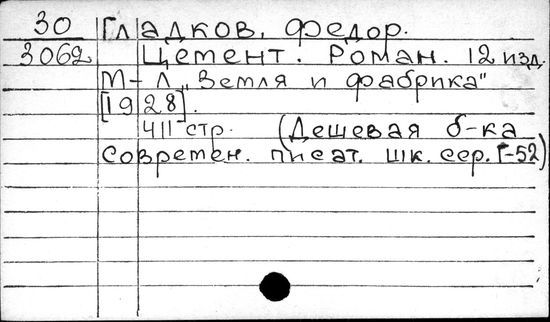 30 Гладков, Федор.
3062 Цемент. Роман. 12 изд.
М-Л „Земля и фабрика"
[1928].
411 стр. (Дешевая б-ка
современ. писат. шк. сер. Г-52)